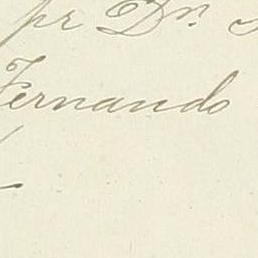 pr Dn.
Fernando